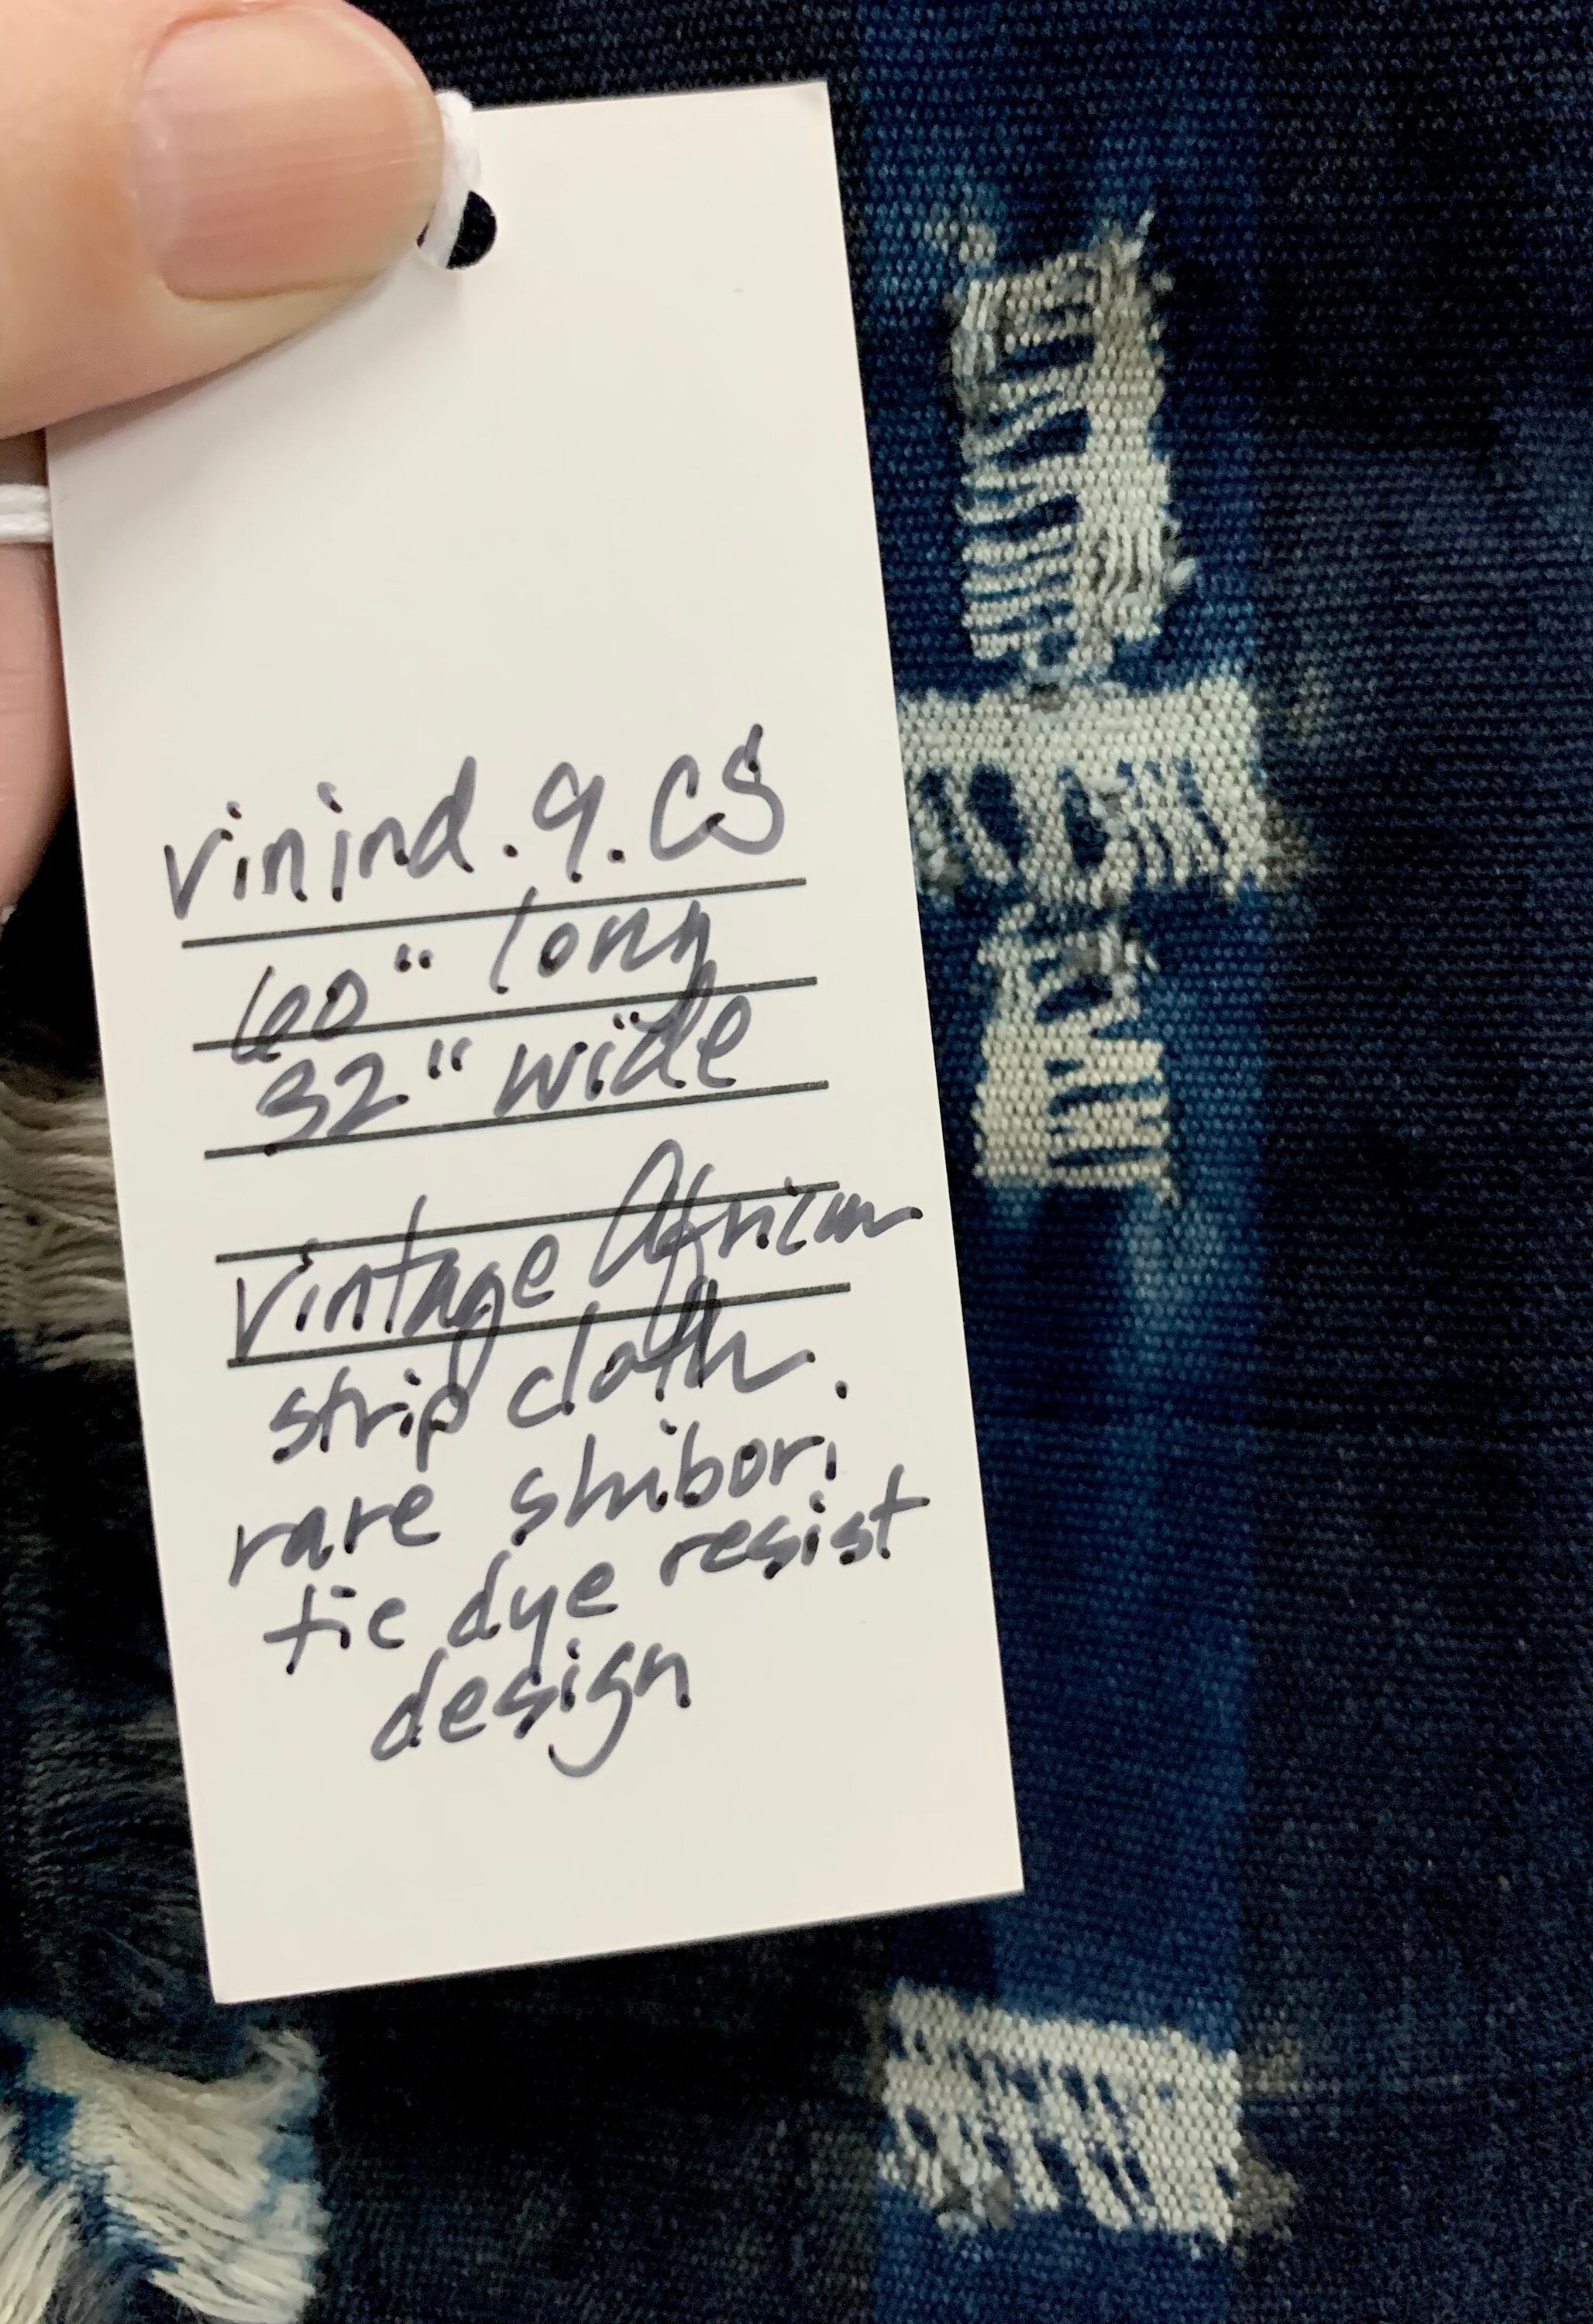 vinind.9.CS
60" long
32" wide
Vintage African
strip cloth.
rare shibori
tie dye resist
design